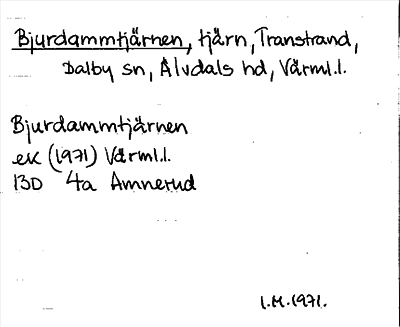 Bjurdammtjärnen, tjärn, Transtrand,
Dalby sn, Älvdals hd, Värml.l.
Bjurdammtjärnen
ek (1971) Värml.l.
13D 4a Amnerud
I.M.1971.